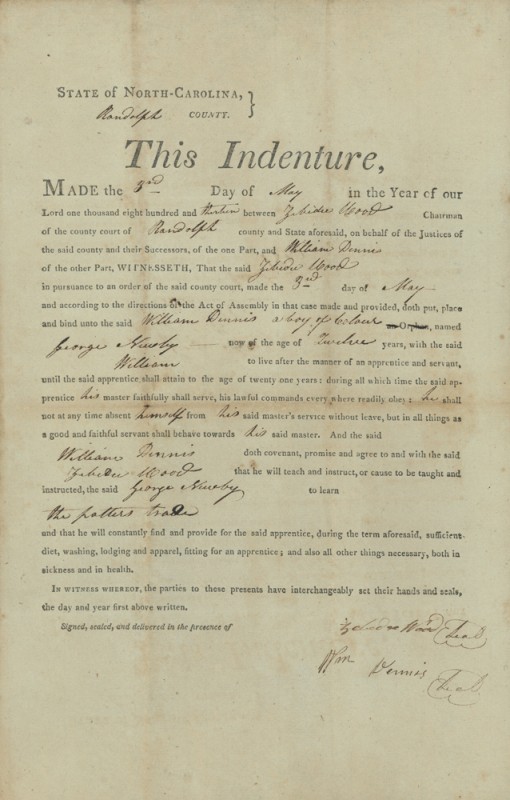 STATE of NORTH-CAROLINA, }
Randolph COUNTY.
This Indenture,
MADE the 3rd Day of May in the Year of our
Lord one thousand eight hundred and thirteen between Zebidee Wood Chairman
of the county court of Randolph county and State aforesaid, on behalf of the Justices of
the said county and their Successors, of the one Part, and William Dennis
of the other Part, WITNESSETH, That the said Zebidee Wood
in pursuance to an order of the said county court, made the 3rd day of May
and according to the directions of the Act of Assembly in that case made and provided, doth put, place
and bind unto the said William Dennis a Boy of Colour an Orphan, named
George Newby now of the age of Twelve years, with the said
William to live after the manner of an apprentice and servant,
until the said apprentice shall attain to the age of twenty one years: during all which time the said ap-
prentice his master faithfully shall serve, his lawful commands every where readily obey: he shall
not at any time absent himself from his said master's service without leave, but in all things as
a good and faithful servant shall behave towards his said master. And the said
William Dennis doth covenant, promise and agree to and with the said
Zebidee Wood that he will teach and instruct, or cause to be taught and
instructed, the said George Newby to learn
the potters trade
and that he will constantly find and provide for the said apprentice, during the term aforesaid, sufficient
diet, washing, lodging and apparel, fitting for an apprentice; and also all other things necessary, both in
sickness and in health.
IN WITNESS WHEREOF, the parties to these presents have interchangeably set their hands and seals,
the day and year first above written.
Signed, sealed, and delivered in the presence of
Zebidee Wood (seal)
Wm Dennis (seal)